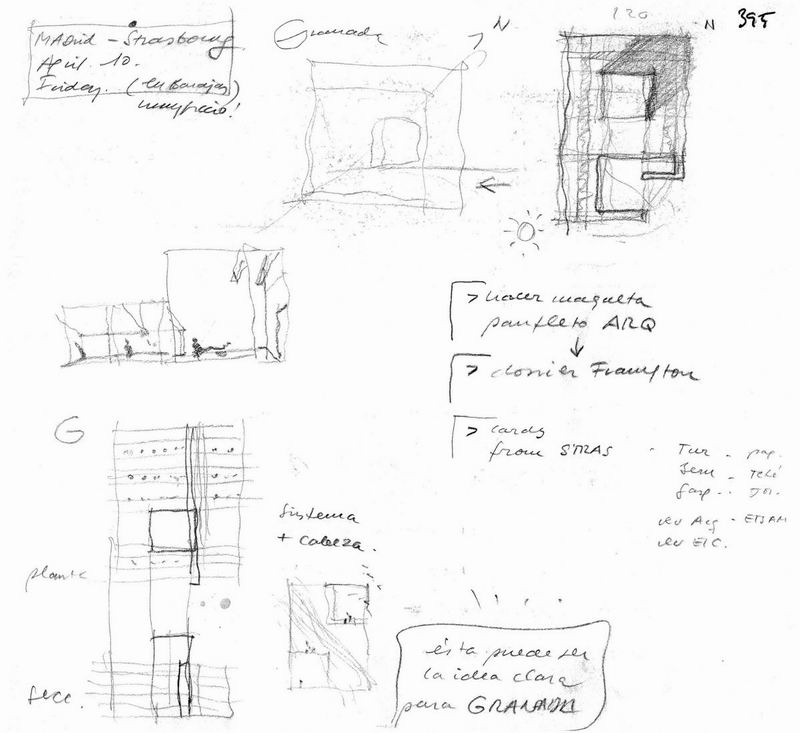 MAdrid - Strasbourg
April. 10.
Friday. (en Barajas)
Granada
N
120
N
395
> hacer maqueta
panfleto ARQ
> dossier Frampton
> cards
from STRAS
Tur -
- ETSAM
G
sistema
+ cabeza.
planta
secc.
ésta puede ser
la idea clara
para GRANADA